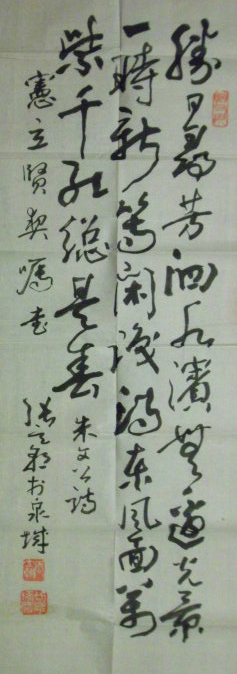 勝日尋芳泗水濱無邊光景
一時新等閒識得東風面萬
紫千紅總是春 朱文公詩
憲立賢契囑書 張 於泉城